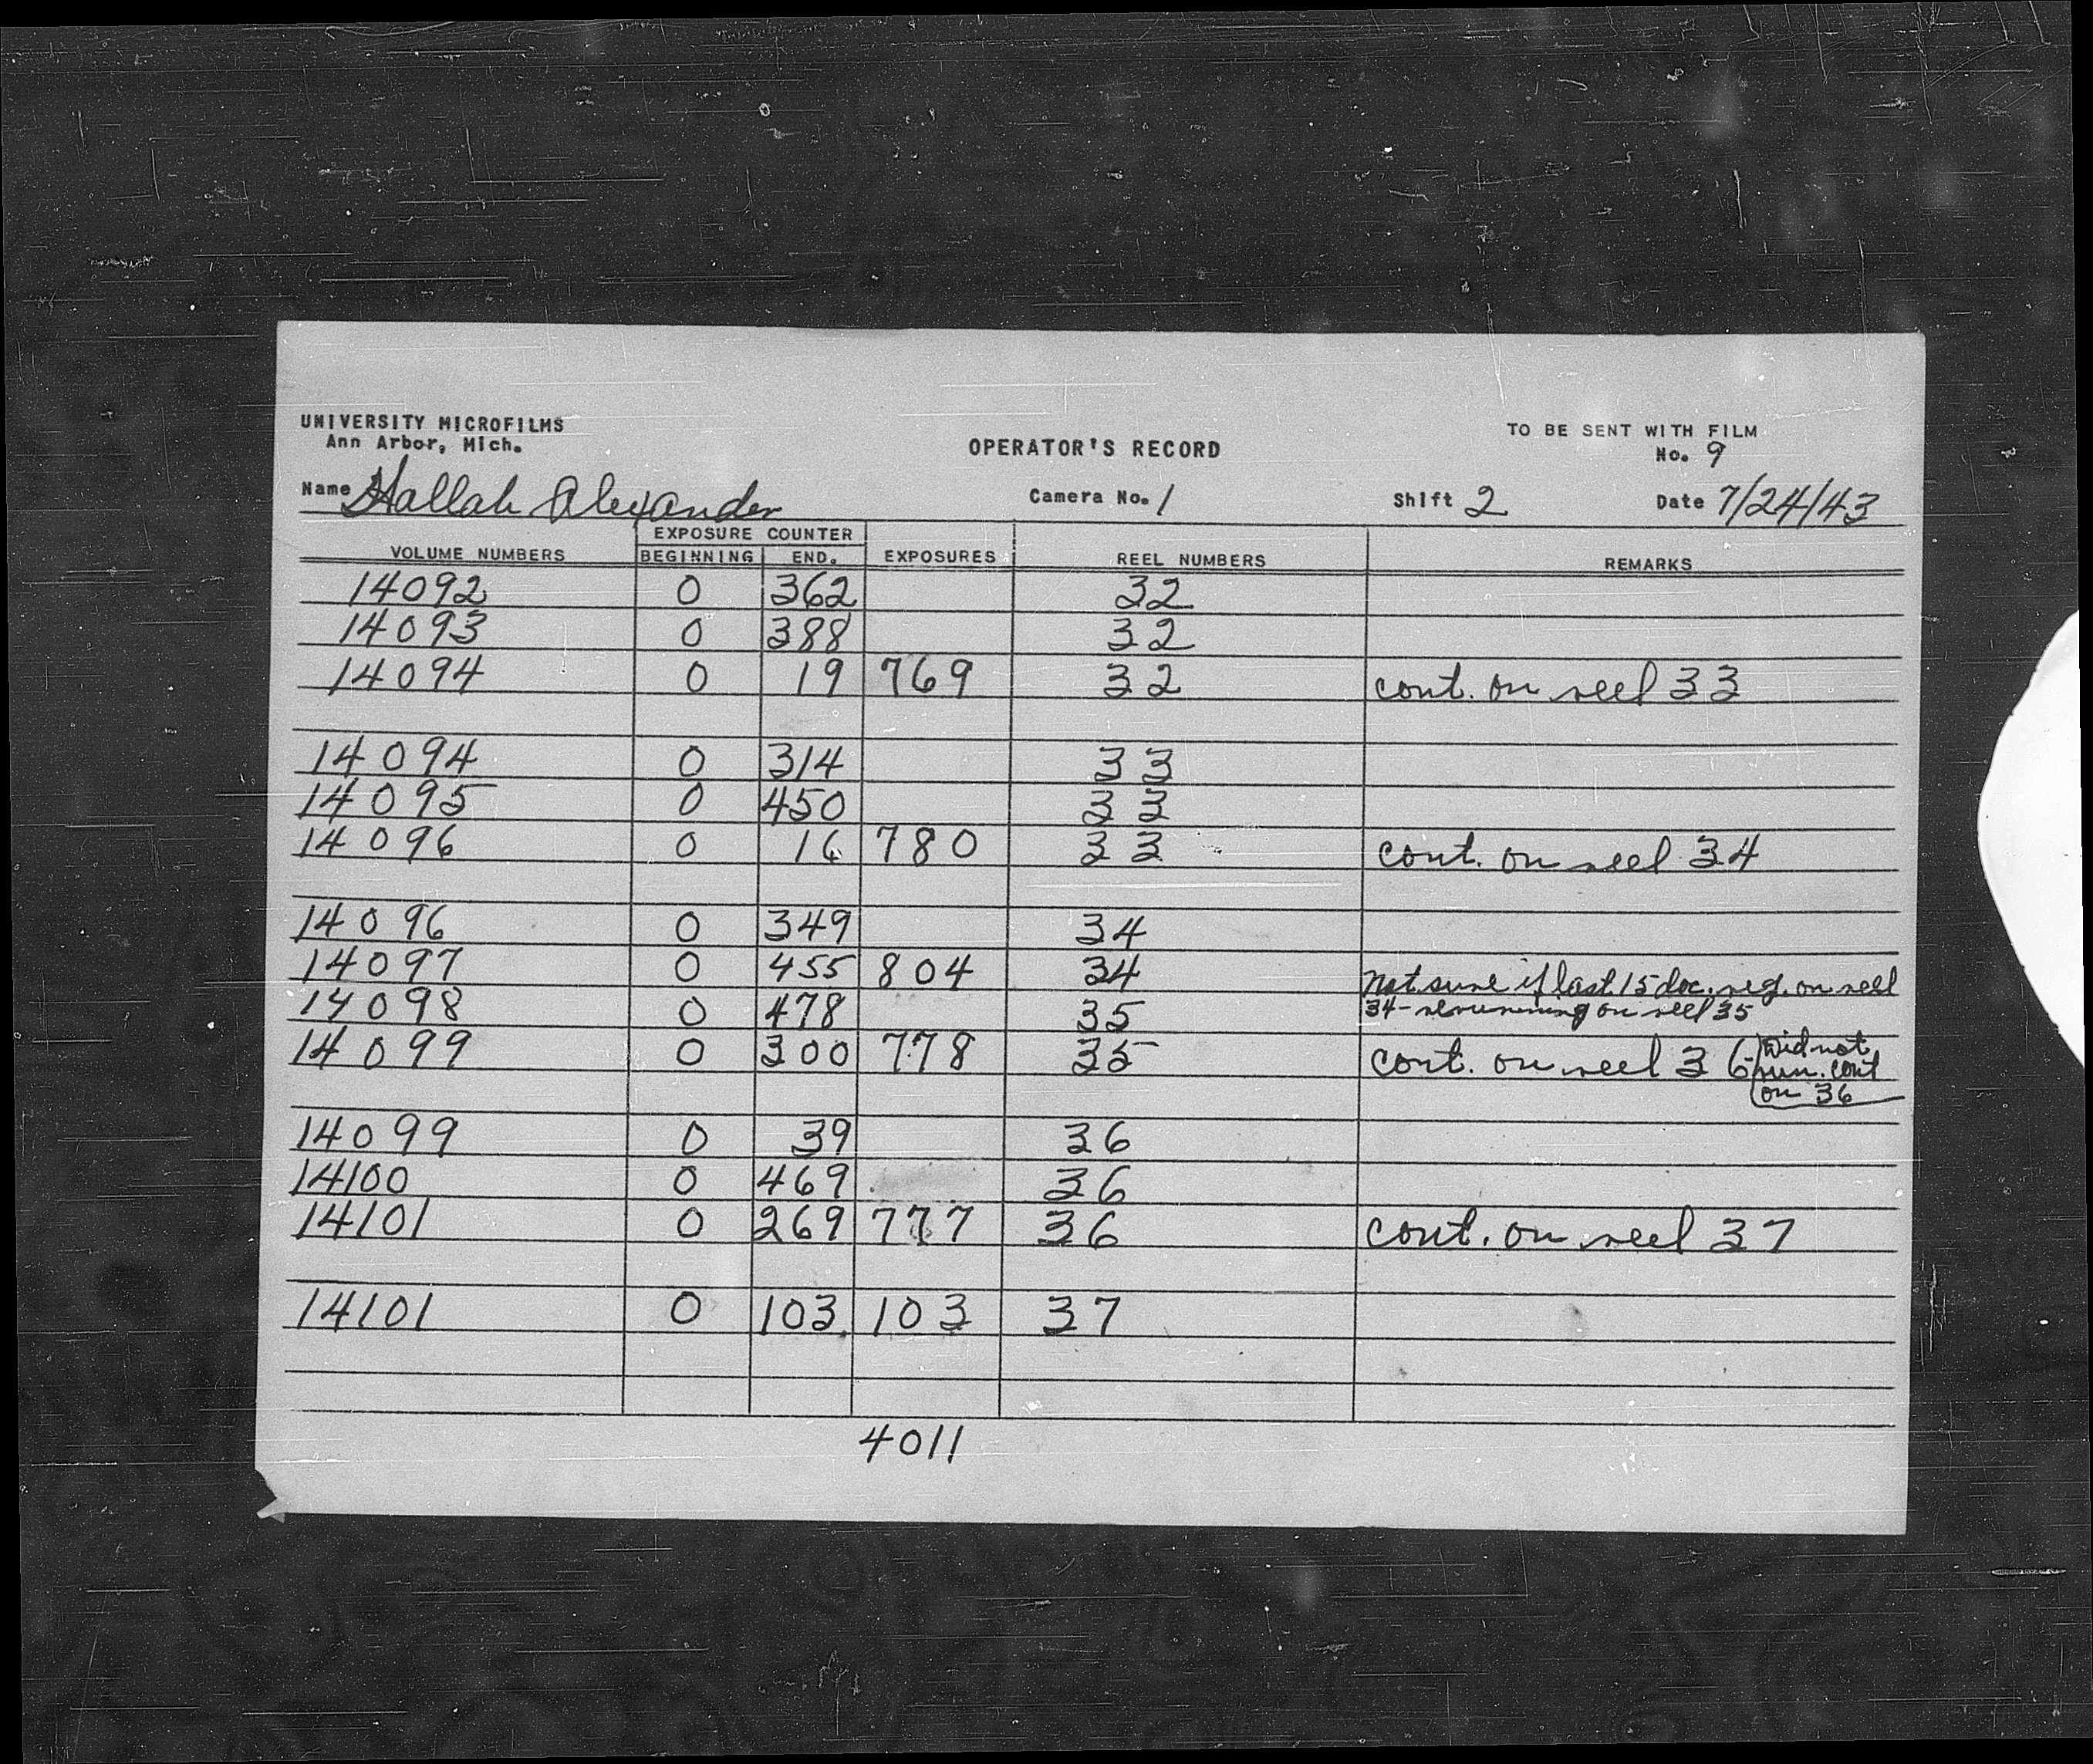 UNIVERSITY MICROFILMS
Ann Arbor, Mich.
OPERATOR'S RECORD
TO BE SENT WITH FILM
No. 9
Name Hallah Alexander Camera No. 1 Shift 2 Date 7/24/43
EXPOSURE COUNTER
VOLUME NUMBERS BEGINNING END. EXPOSURES REEL NUMBERS REMARKS
14092 0 362 32
14093 0 388 32
14094 0 19 769 32 cont. on reel 33
14094 0 314 33
14095 0 450 33
14096 0 16 780 33 cont. on reel 34
14096 0 349 34
14097 0 455 804 34 Not sure if last 15 doc. reg. on reel
34 - rerunning on reel 35
14098 0 478 35
14099 0 300 778 35 cont. on reel 36 - Did not
run. cont
on 36
14099 0 39 36
14100 0 469 36
14101 0 269 777 36 cont. on reel 37
14101 0 103 103 37
4011